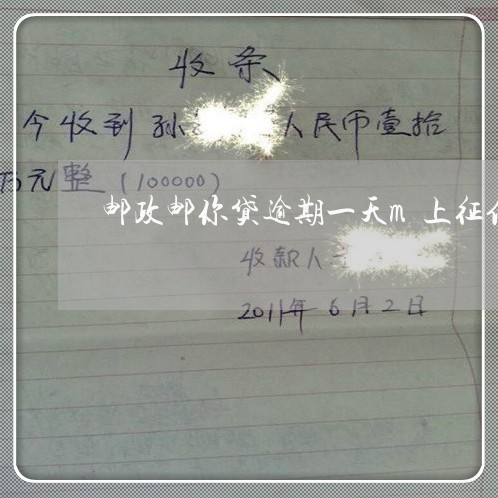 收条
今收到孙 人民币壹拾
万元整（100000）
邮政邮你贷逾期一天m 上征
收款人
2011年6月2日